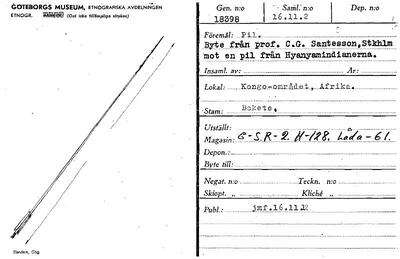 GÖTEBORGS MUSEUM, ETNOGRAFISKA AVDELNINGEN
ETNOGR. (Det icke tillämpliga strykes)
Elanders, Gbg
Gen. n:o Saml. n:o Dep. n:o
18398 16.11.2
Föremål: Pil.
Byte från prof. C.G. Santesson,Stkhlm
mot en pil från Hyanyamindianerna.
Insaml. av: År:
Lokal: Kongo-området, Afrika.
Stam: Bokote.
Utställt:
Magasin: G-S.R-2. H-128. Låda-61.
Depon.:
Byte till:
Negat. n:o Teckn. n:o
Skiopt. „ Kliché „
Publ.: jmf.16.11.12